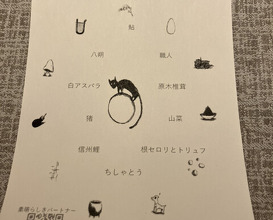 鮎
八朔 鰻
白アスパラ 原木椎茸
猪 山菜
信州鯉 根セロリとトリュフ
ちしゃとう
素晴らしきパートナー